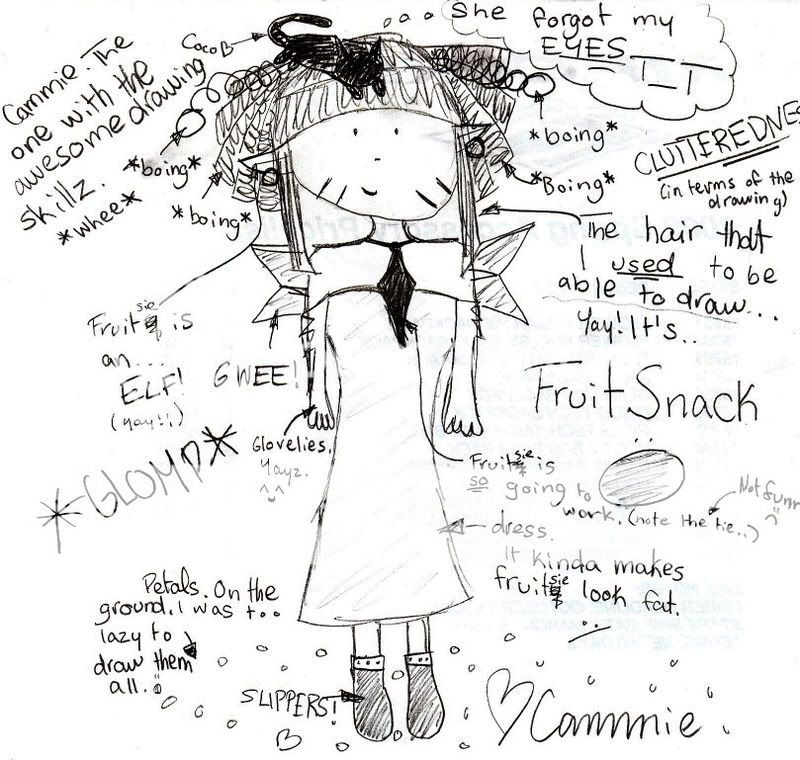 She forgot my
EYES
T_T
CocoB
Cammie. The
one with the
awesome drawing
skillz.
*whee*
*boing*
*boing*
*boing*
*Boing*
CLUTTEREDNESS
(in terms of the
drawing)
The hair that
I used to be
able to draw...
Yay! It's..
Fruitsie is
an...
ELF!
(yay!!)
GWEE!
FruitSnack
*GLOMP*
Glovelies.
Yayz.
^_^
Fruitsie is
so going to
work. (note the tie..)
Not funny
dress.
It kinda makes
fruitsie look fat.
Petals. On the
ground. I was too
lazy to
draw them
all.
SLIPPERS!
Cammie